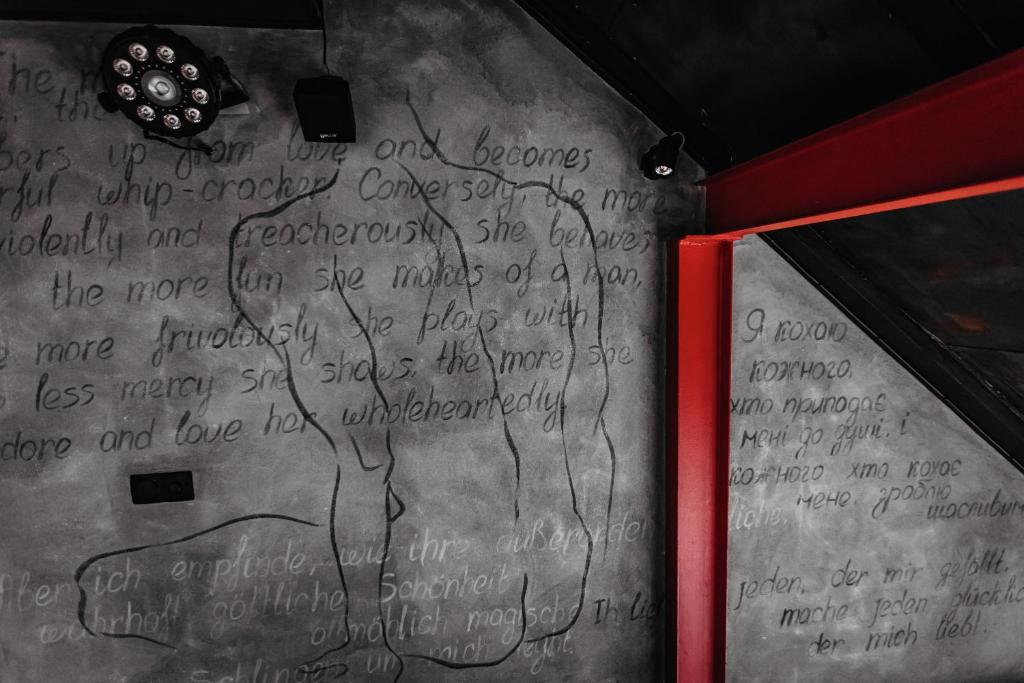 The
the
bers up from love and becomes
rful whip-cracker. Conversely, the more
violently and treacherously she behaves,
the more fun she makes of a man,
more frivolously she plays with
less mercy she shows, the more she
dore and love her wholeheartedly.
Aber ich empfinde, wie ihre außerorden
wahrhaft göttliche Schönheit
allmählich magische
Schlingen um mich legt.
Я кохаю
кожного,
хто припадає
мені до душі, і
кожного хто кохає
мене, зроблю
щасливим
liche,
Ih lie
jeden, der mir gefällt,
mache jeden glücklic
der mich liebt.